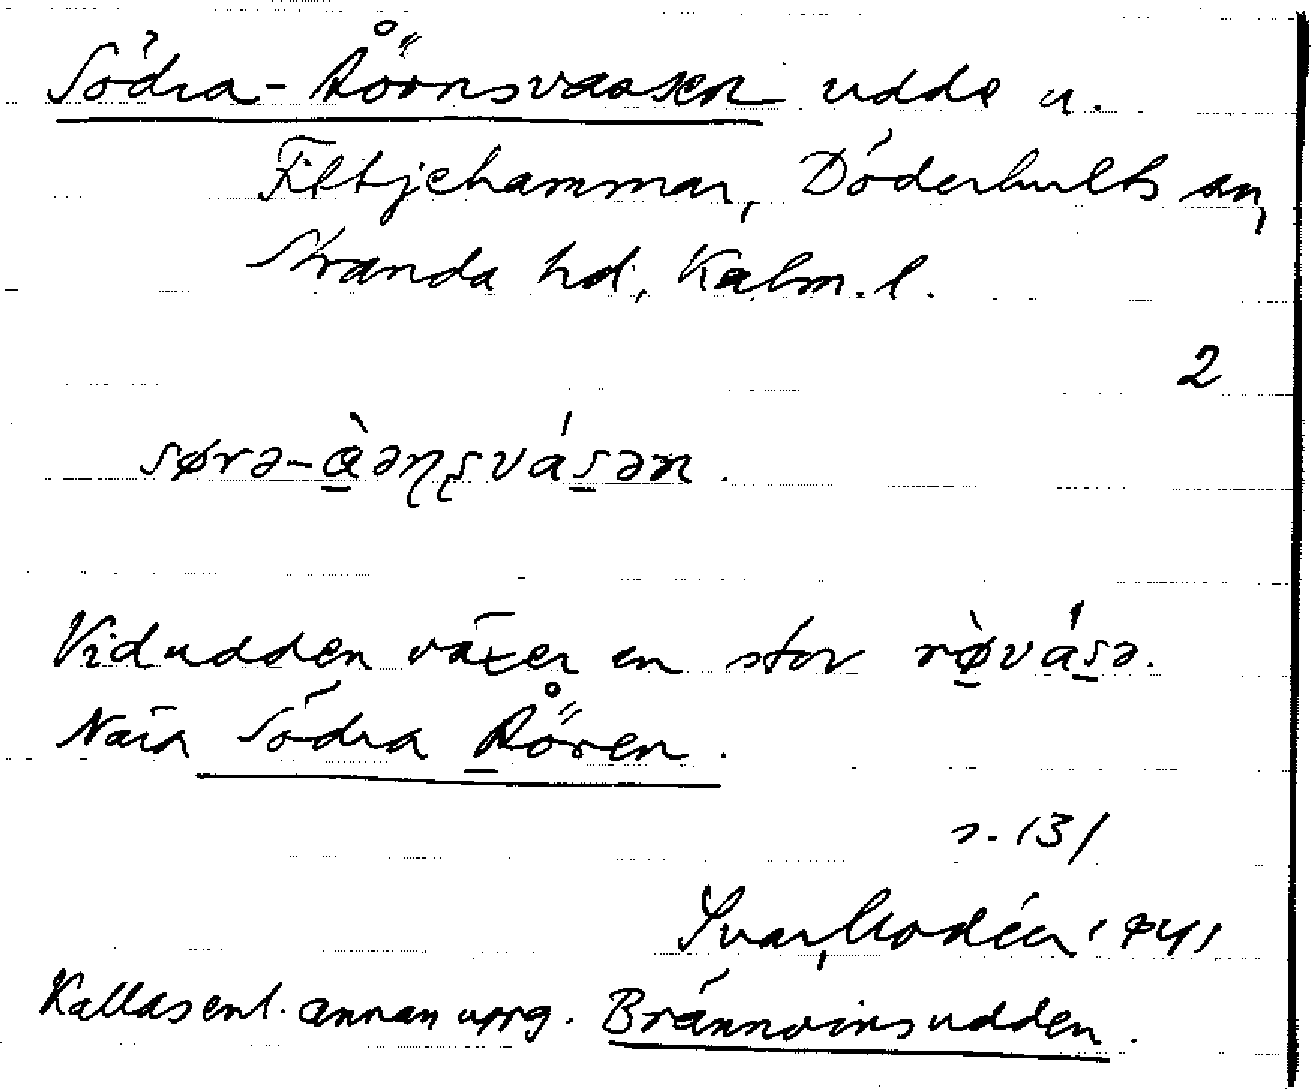 Södra-Åörnsvassen udde u.
Fittjehammar, Döderhults sn,
Stranda hd, Kalm.l.
2
Vid udden växer en stor rø̀vásə.
Nära Södra Åören.
s. 131
Ivar Modéer 1941
Kallas enl. annan uppg. Brännvinsudden.